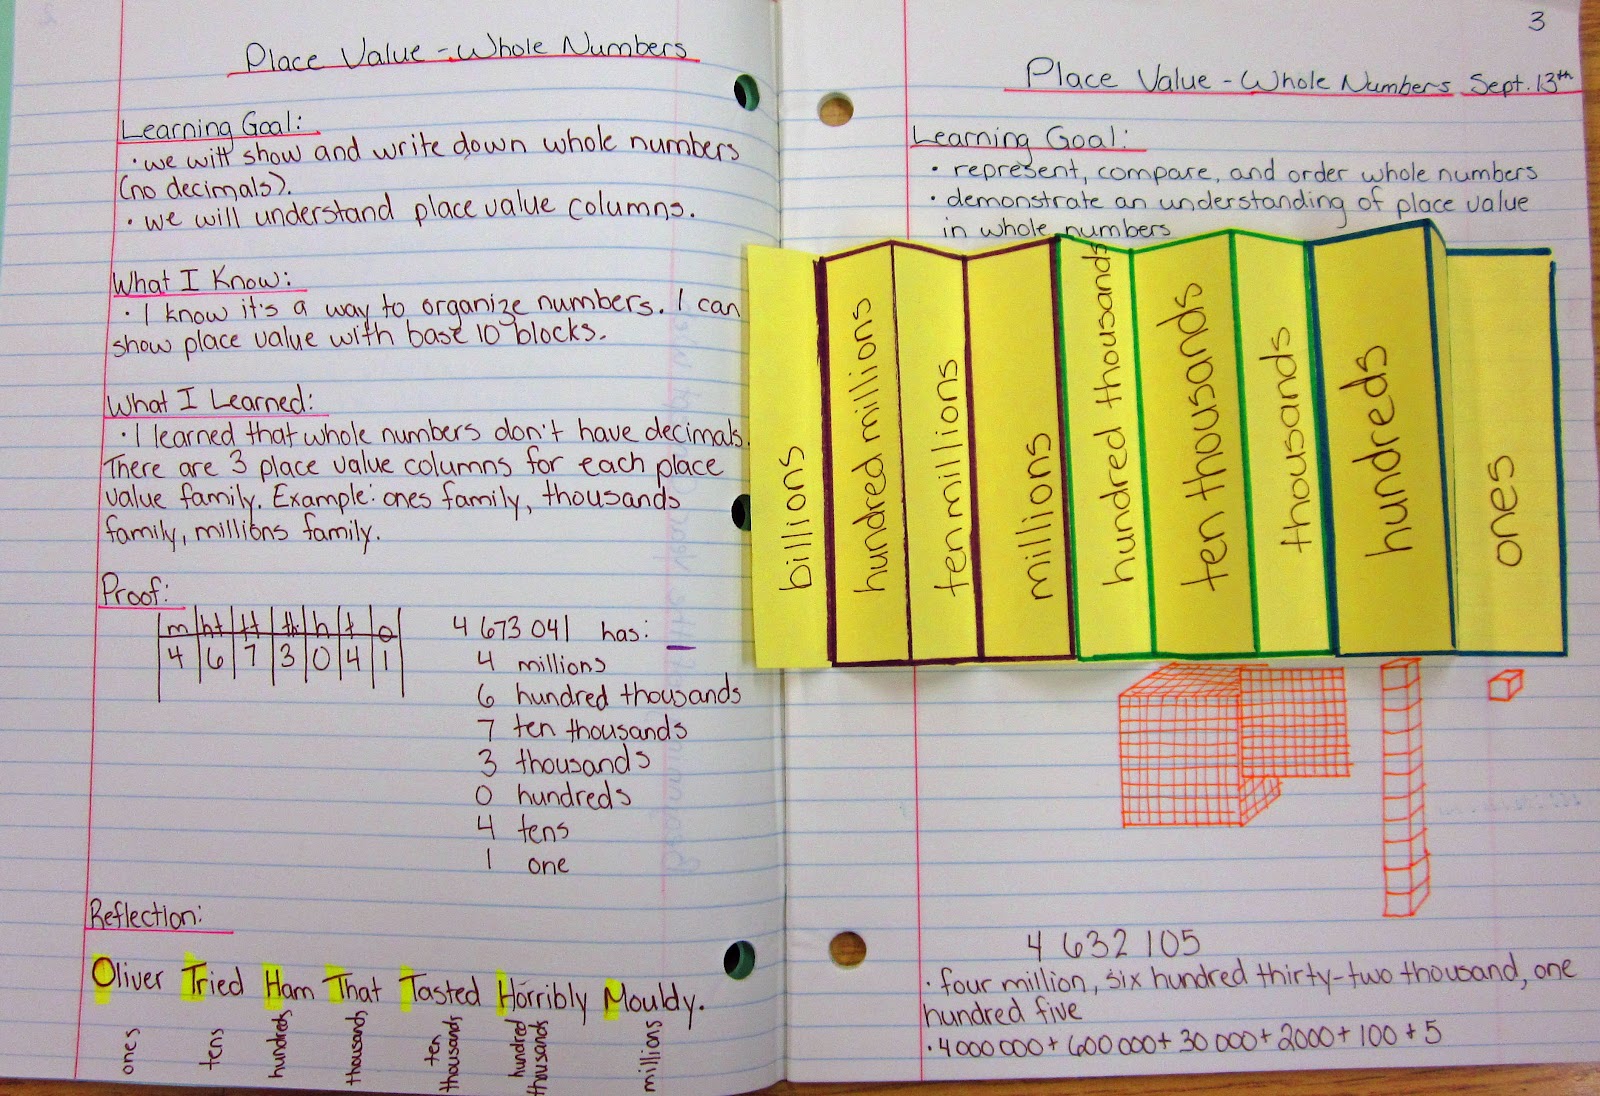 Place Value - Whole Numbers
Learning Goal:
· we will show and write down whole numbers
(no decimals).
· we will understand place value columns.
What I Know:
· I know it's a way to organize numbers. I can
show place value with base 10 blocks.
What I Learned:
· I learned that whole numbers don't have decimals.
There are 3 place value columns for each place
value family. Example: ones family, thousands
family, millions family.
Proof:
m ht tt th h t o
4 6 7 3 0 4 1
4 673 041 has:
4 millions
6 hundred thousands
7 ten thousands
3 thousands
0 hundreds
4 tens
1 one
Reflection:
Oliver Tried Ham That Tasted Horribly Mouldy.
ones
tens
hundreds
thousands
ten thousands
hundred thousands
millions
3
Place Value - Whole Numbers Sept. 13th
Learning Goal:
· represent, compare, and order whole numbers
· demonstrate an understanding of place value
in whole numbers
billions
hundred millions
ten millions
millions
hundred thousands
ten thousands
thousands
hundreds
ones
4 632 105
· four million, six hundred thirty-two thousand, one
hundred five
· 4 000 000 + 600 000 + 30 000 + 2000 + 100 + 5